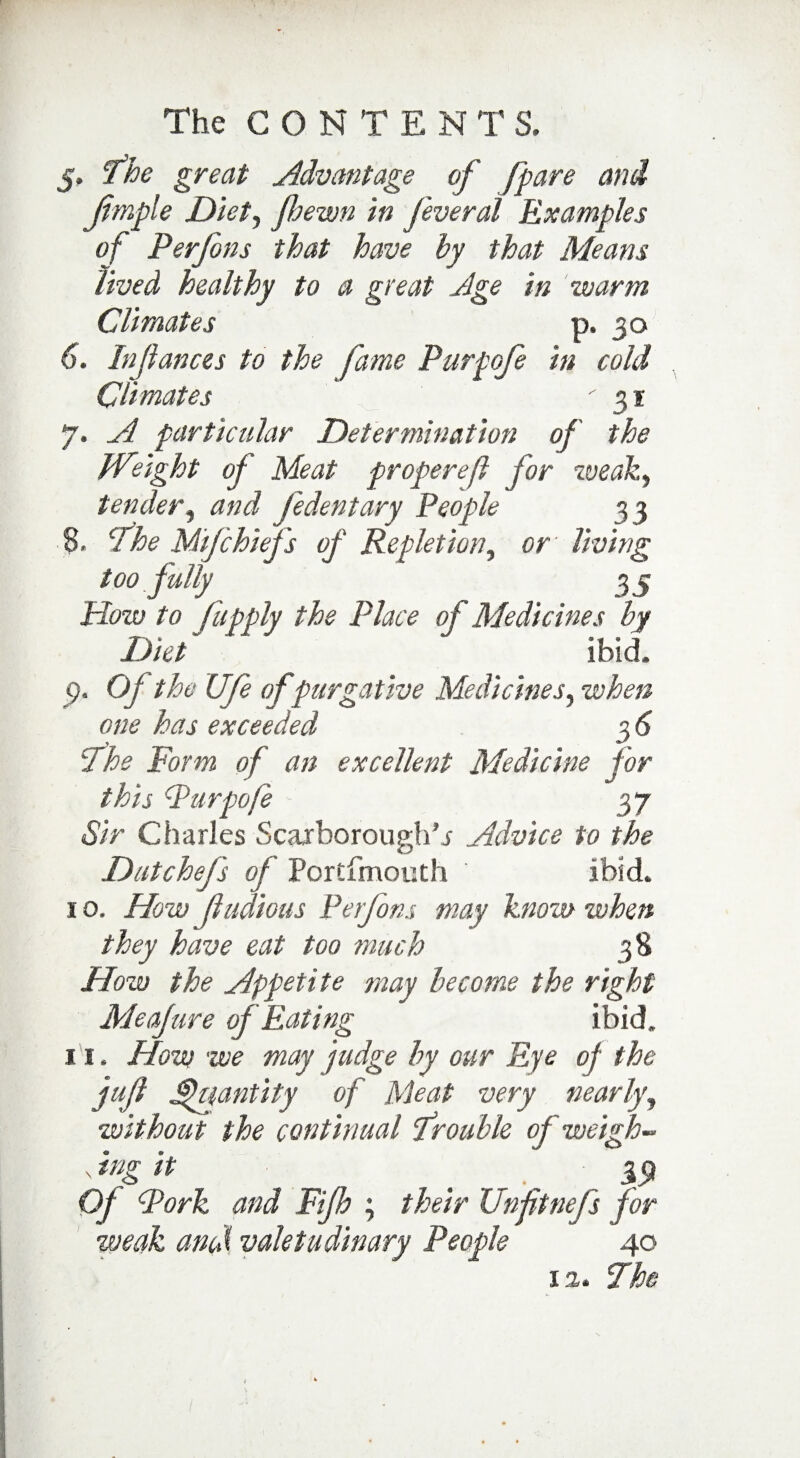 The CONTENTS.
5. The great Advantage of ſpare and
ſimple Diet, ſhewn in ſeveral Examples
of Perſons that have by that Means
lived healthy to a great Age in warm
Climates p. 30
6. Inſtances to the ſame Purpoſe in cold
Climates 31
7. A particular Determination of the
Weight of Meat propereſt for weak,
tender, and ſedentary People 33
8. The Miſchiefs of Repletion, or living
too fully 35
How to ſupply the Place of Medicines by
Diet ibid.
9. Of the Uſe of purgative Medicines, when
one has exceeded 36
The Form of an excellent Medicine for
this Purpoſe 37
Sir Charles Scarborough's Advice to the
Dutcheſs of Portſmouth ibid.
10. How ſtudious Perſons may know when
they have eat too much 38
How the Appetite may become the right
Meaſure of Eating ibid.
11. How we may judge by our Eye of the
juſt Quantity of Meat very nearly,
without the continual Trouble of weigh-
ing it 39
Of Pork and Fiſh ; their Unfitneſs for
weak and valetudinary People 40
12. The